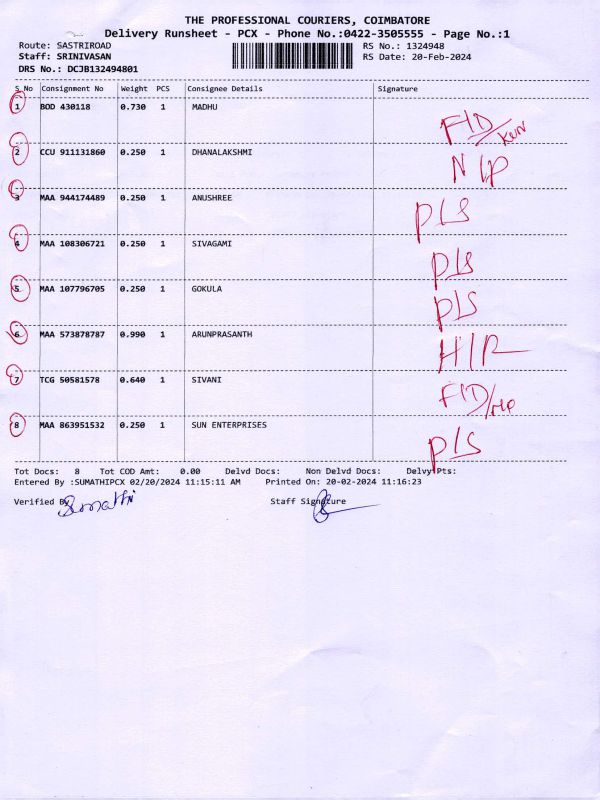 THE PROFESSIONAL COURIERS, COIMBATORE
Delivery Runsheet - PCX - Phone No.:0422-3505555 - Page No.:1
Route: SASTRIROAD RS No.: 1324948
Staff: SRINIVASAN RS Date: 20-Feb-2024
DRS No.: DCJB132494801
S No Consignment No Weight PCS Consignee Details Signature
1 BOD 430118 0.730 1 MADHU F/D/
2 CCU 911131860 0.250 1 DHANALAKSHMI N/P
3 MAA 944174489 0.250 1 ANUSHREE P/S
4 MAA 108306721 0.250 1 SIVAGAMI P/S
5 MAA 107796705 0.250 1 GOKULA P/S
6 MAA 573878787 0.990 1 ARUNPRASANTH H/R
7 TCG 50581578 0.640 1 SIVANI F/D/
8 MAA 863951532 0.250 1 SUN ENTERPRISES P/S
Tot Docs: 8 Tot COD Amt: 0.00 Delvd Docs: Non Delvd Docs: Delvy Pts:
Entered By :SUMATHIPCX 02/20/2024 11:15:11 AM Printed On: 20-02-2024 11:16:23
Verified By Sumathi Staff Signature